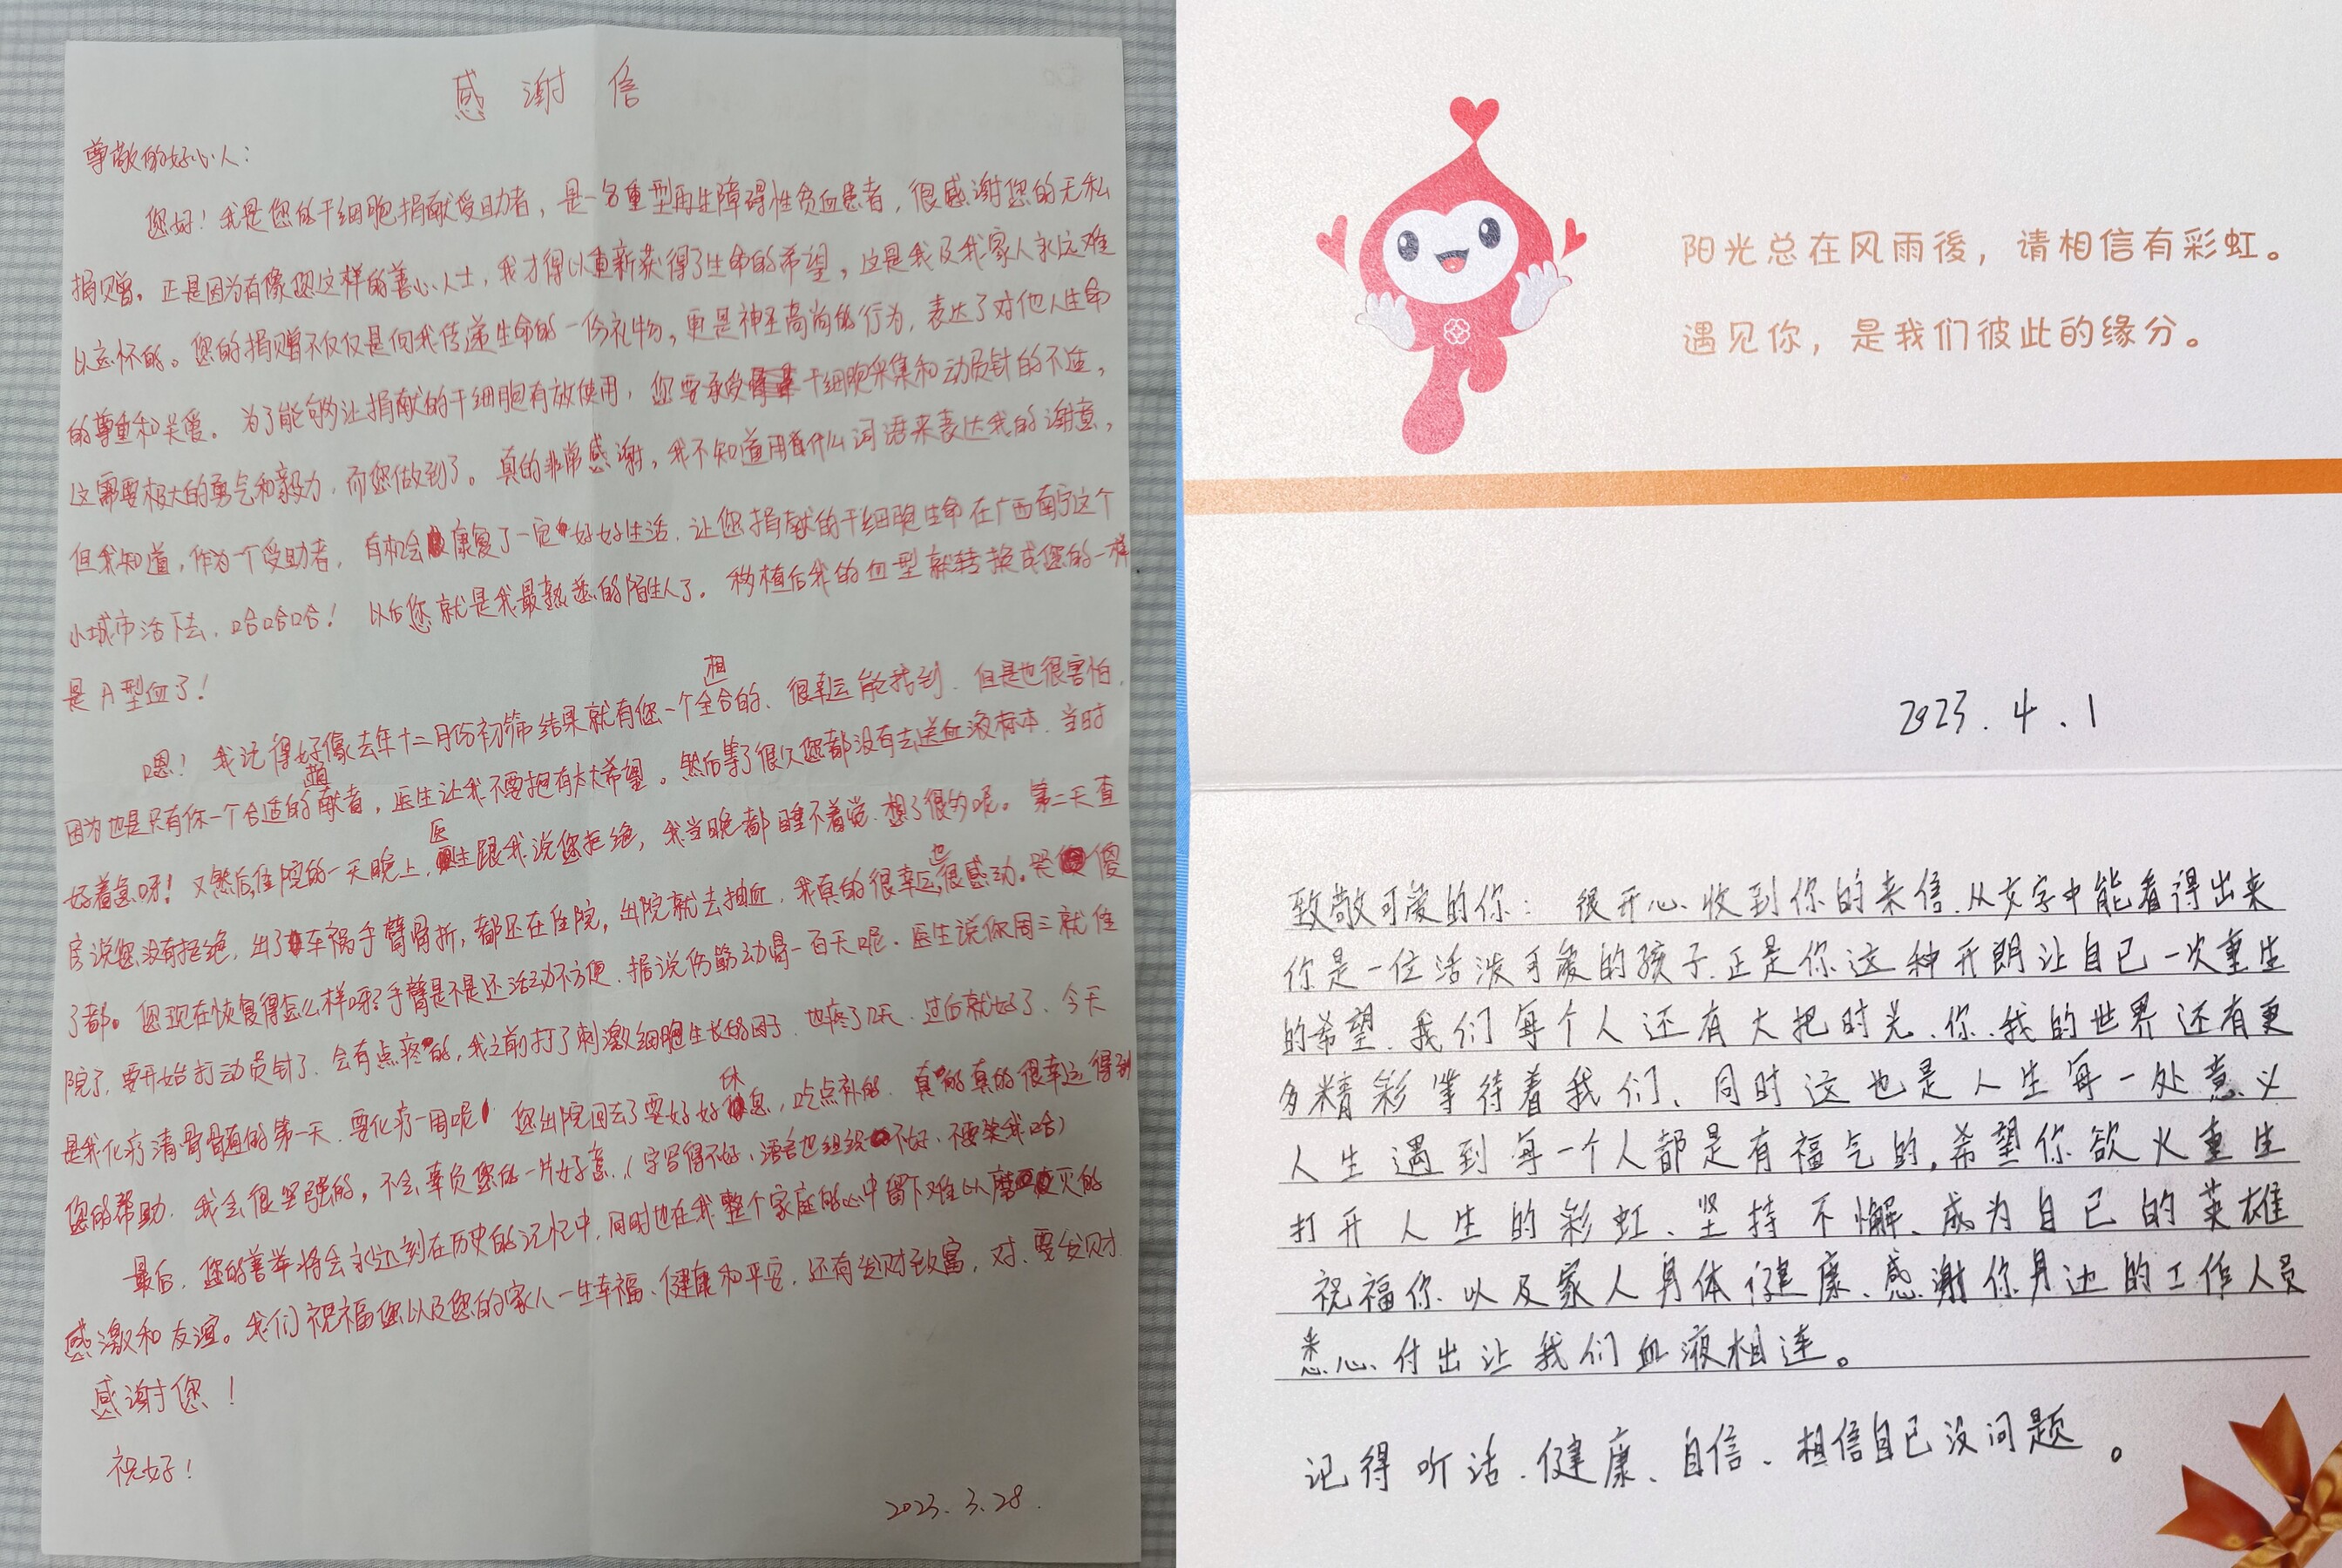 感谢信
尊敬的好心人：
您好！我是您的干细胞捐献受助者，是一名重型再生障碍性贫血患者，很感谢您的无私
捐赠。正是因为有像您这样的善心人士，我才得以重新获得了生命的希望，这是我及我家人永远难
以忘怀的。您的捐赠不仅仅是向我传递生命的一份礼物，更是神圣高尚的行为，表达了对他人生命
的尊重和关爱。为了能够让捐献的干细胞有效使用，您要承受干细胞采集和动员针的不适，
这需要极大的勇气和毅力，而您做到了。真的非常感谢，我不知道用什么词语来表达我的谢意，
但我知道，作为一个受助者，有机会康复了一定好好生活，让您捐献的干细胞生命在广西南宁这个
小城市活下去，哈哈哈！以后您就是我最熟悉的陌生人了。移植后我的血型就转换成您的一样
是A型血了！
嗯！我记得好像去年十二月份初筛结果就有您一个全相合的、很幸运能找到，但是也很害怕，
因为也是只有你一个合适的捐献者，医生让我不要抱有太大希望。然后等了很久您都没有去送血液标本，当时
好着急呀！又然后住院的一天晚上，医生跟我说您拒绝，我当晚都睡不着觉，想了很多呢。第二天查
房说您没有拒绝，出了车祸手臂骨折，都还在住院，出院就去抽血，我真的很幸运也很感动。哭傻
了都。您现在恢复得怎么样呀？手臂是不是还活动不方便，据说伤筋动骨一百天呢，医生说你周三就住
院了，要开始打动员针了，会有点疼的，我之前打了刺激细胞生长的因子，也疼了几天，过后就好了，今天
是我化疗清骨髓的第一天，要化疗一周呢！您出院回去了要好好休息，吃点补的，真的真的很幸运得到
您的帮助，我会很坚强的，不会辜负您的一片好意，（字写得不好、语言也组织不好、不要笑我哈）
最后，您的善举将会永远刻在历史的记忆中，同时也在我整个家庭的心中留下难以磨灭的
感激和友谊。我们祝福您以及您的家人一生幸福、健康和平安，还有发财致富，对、要发财
感谢您！
祝好！
2023.3.28.
阳光总在风雨後，请相信有彩虹。
遇见你，是我们彼此的缘分。
2023.4.1
致敬可爱的你：很开心收到你的来信.从文字中能看得出来
你是一位活泼可爱的孩子.正是你这种开朗让自己一次重生
的希望、我们每个人还有大把时光、你、我的世界还有更
多精彩等待着我们、同时这也是人生每一处意义
人生遇到每一个人都是有福气的,希望你欲火重生
打开人生的彩虹、坚持不懈、成为自己的英雄
祝福你以及家人身体健康、感谢你身边的工作人员
悉心付出让我们血液相连。
记得听话、健康、自信、相信自己没问题。